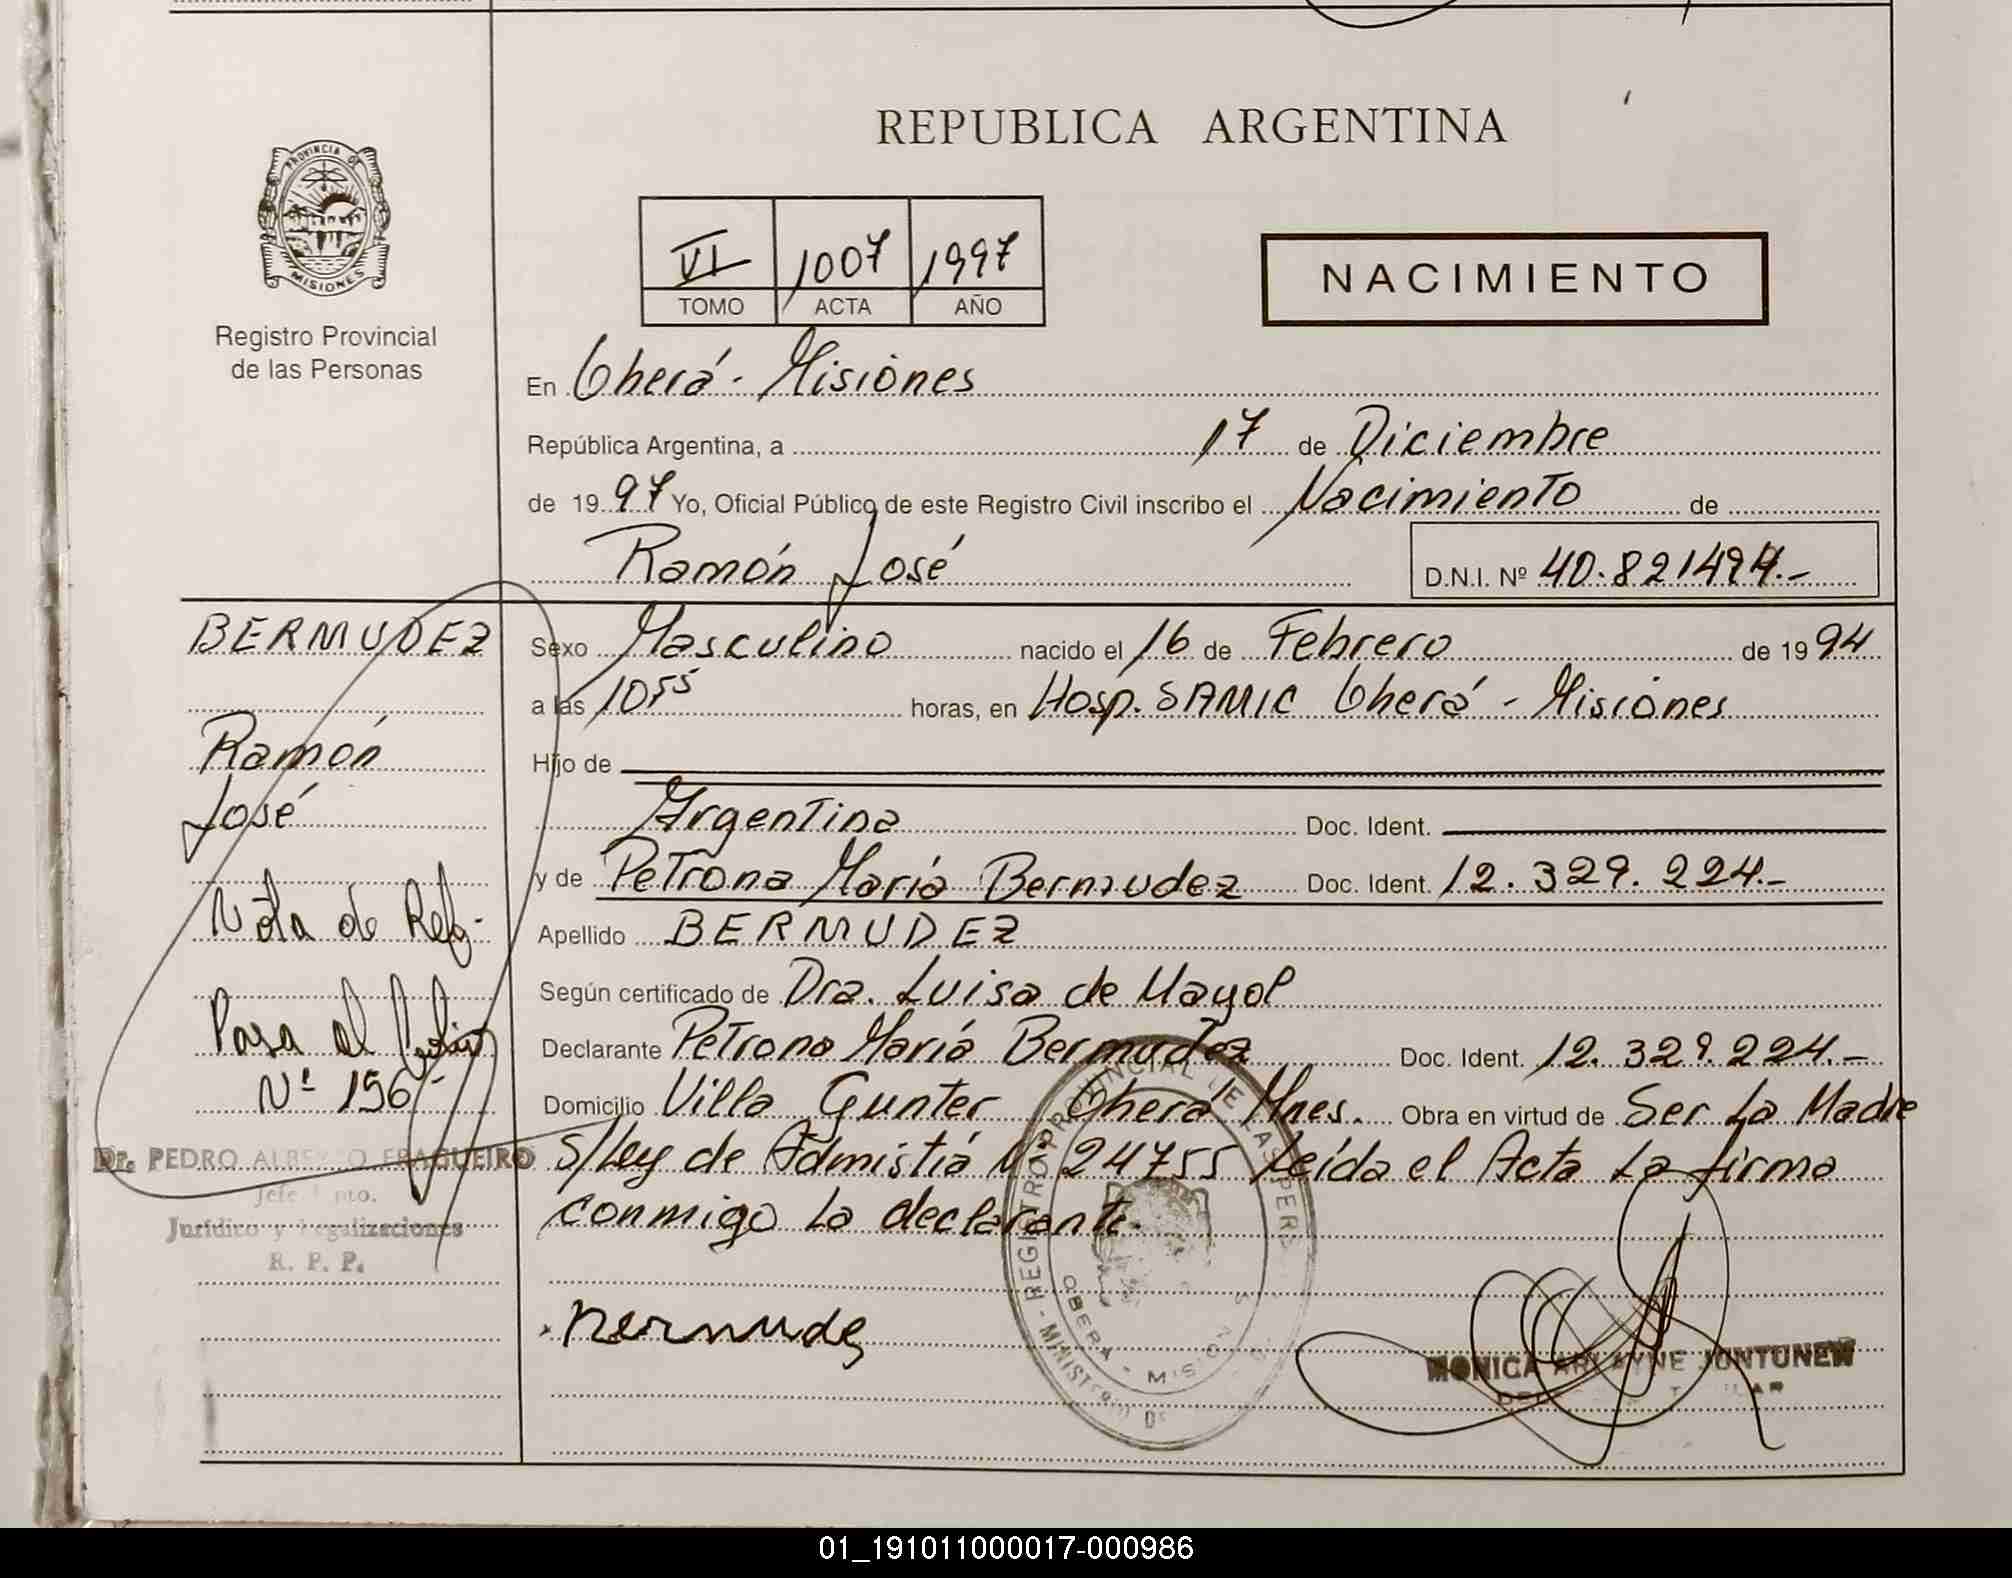 REPUBLICA ARGENTINA
PROVINCIA DE
MISIONES
Registro Provincial
de las Personas
VI 1007 1997
TOMO ACTA AÑO
NACIMIENTO
En Oberá - Misiones
República Argentina, a 17 de Diciembre
de 1997 Yo, Oficial Público de este Registro Civil inscribo el Nacimiento de
Ramón José D.N.I. Nº 40.821494.-
BERMUDEZ
Ramón
José
Nota de Refª
Para el
Nº 196
Dr. PEDRO ALBERTO FRAGUEIRO
Jefe Dpto.
Jurídico y Legalizaciones
R. P. P.
Sexo Masculino nacido el 16 de Febrero de 1994
a las 10⁵⁵ horas, en Hosp. SAMIC Oberá - Misiones
Hijo de
Argentina Doc. Ident.
y de Petrona María Bermudez Doc. Ident. 12.329.224.-
Apellido BERMUDEZ
Según certificado de Dra. Luisa de Mayol
Declarante Petrona María Bermudez Doc. Ident. 12.329.224.-
Domicilio Villa Gunter Oberá Mnes. Obra en virtud de Ser La Madre
S/Ley de Admistiá Nº 24755 Leída el Acta La firma
conmigo La declarante.
Bermudez
REGISTRO PROVINCIAL DE LAS PERS
MINISTERIO DE
OBERA - MISIONES
MONICA ARLAYNE JUNTUNEN
01_191011000017-000986